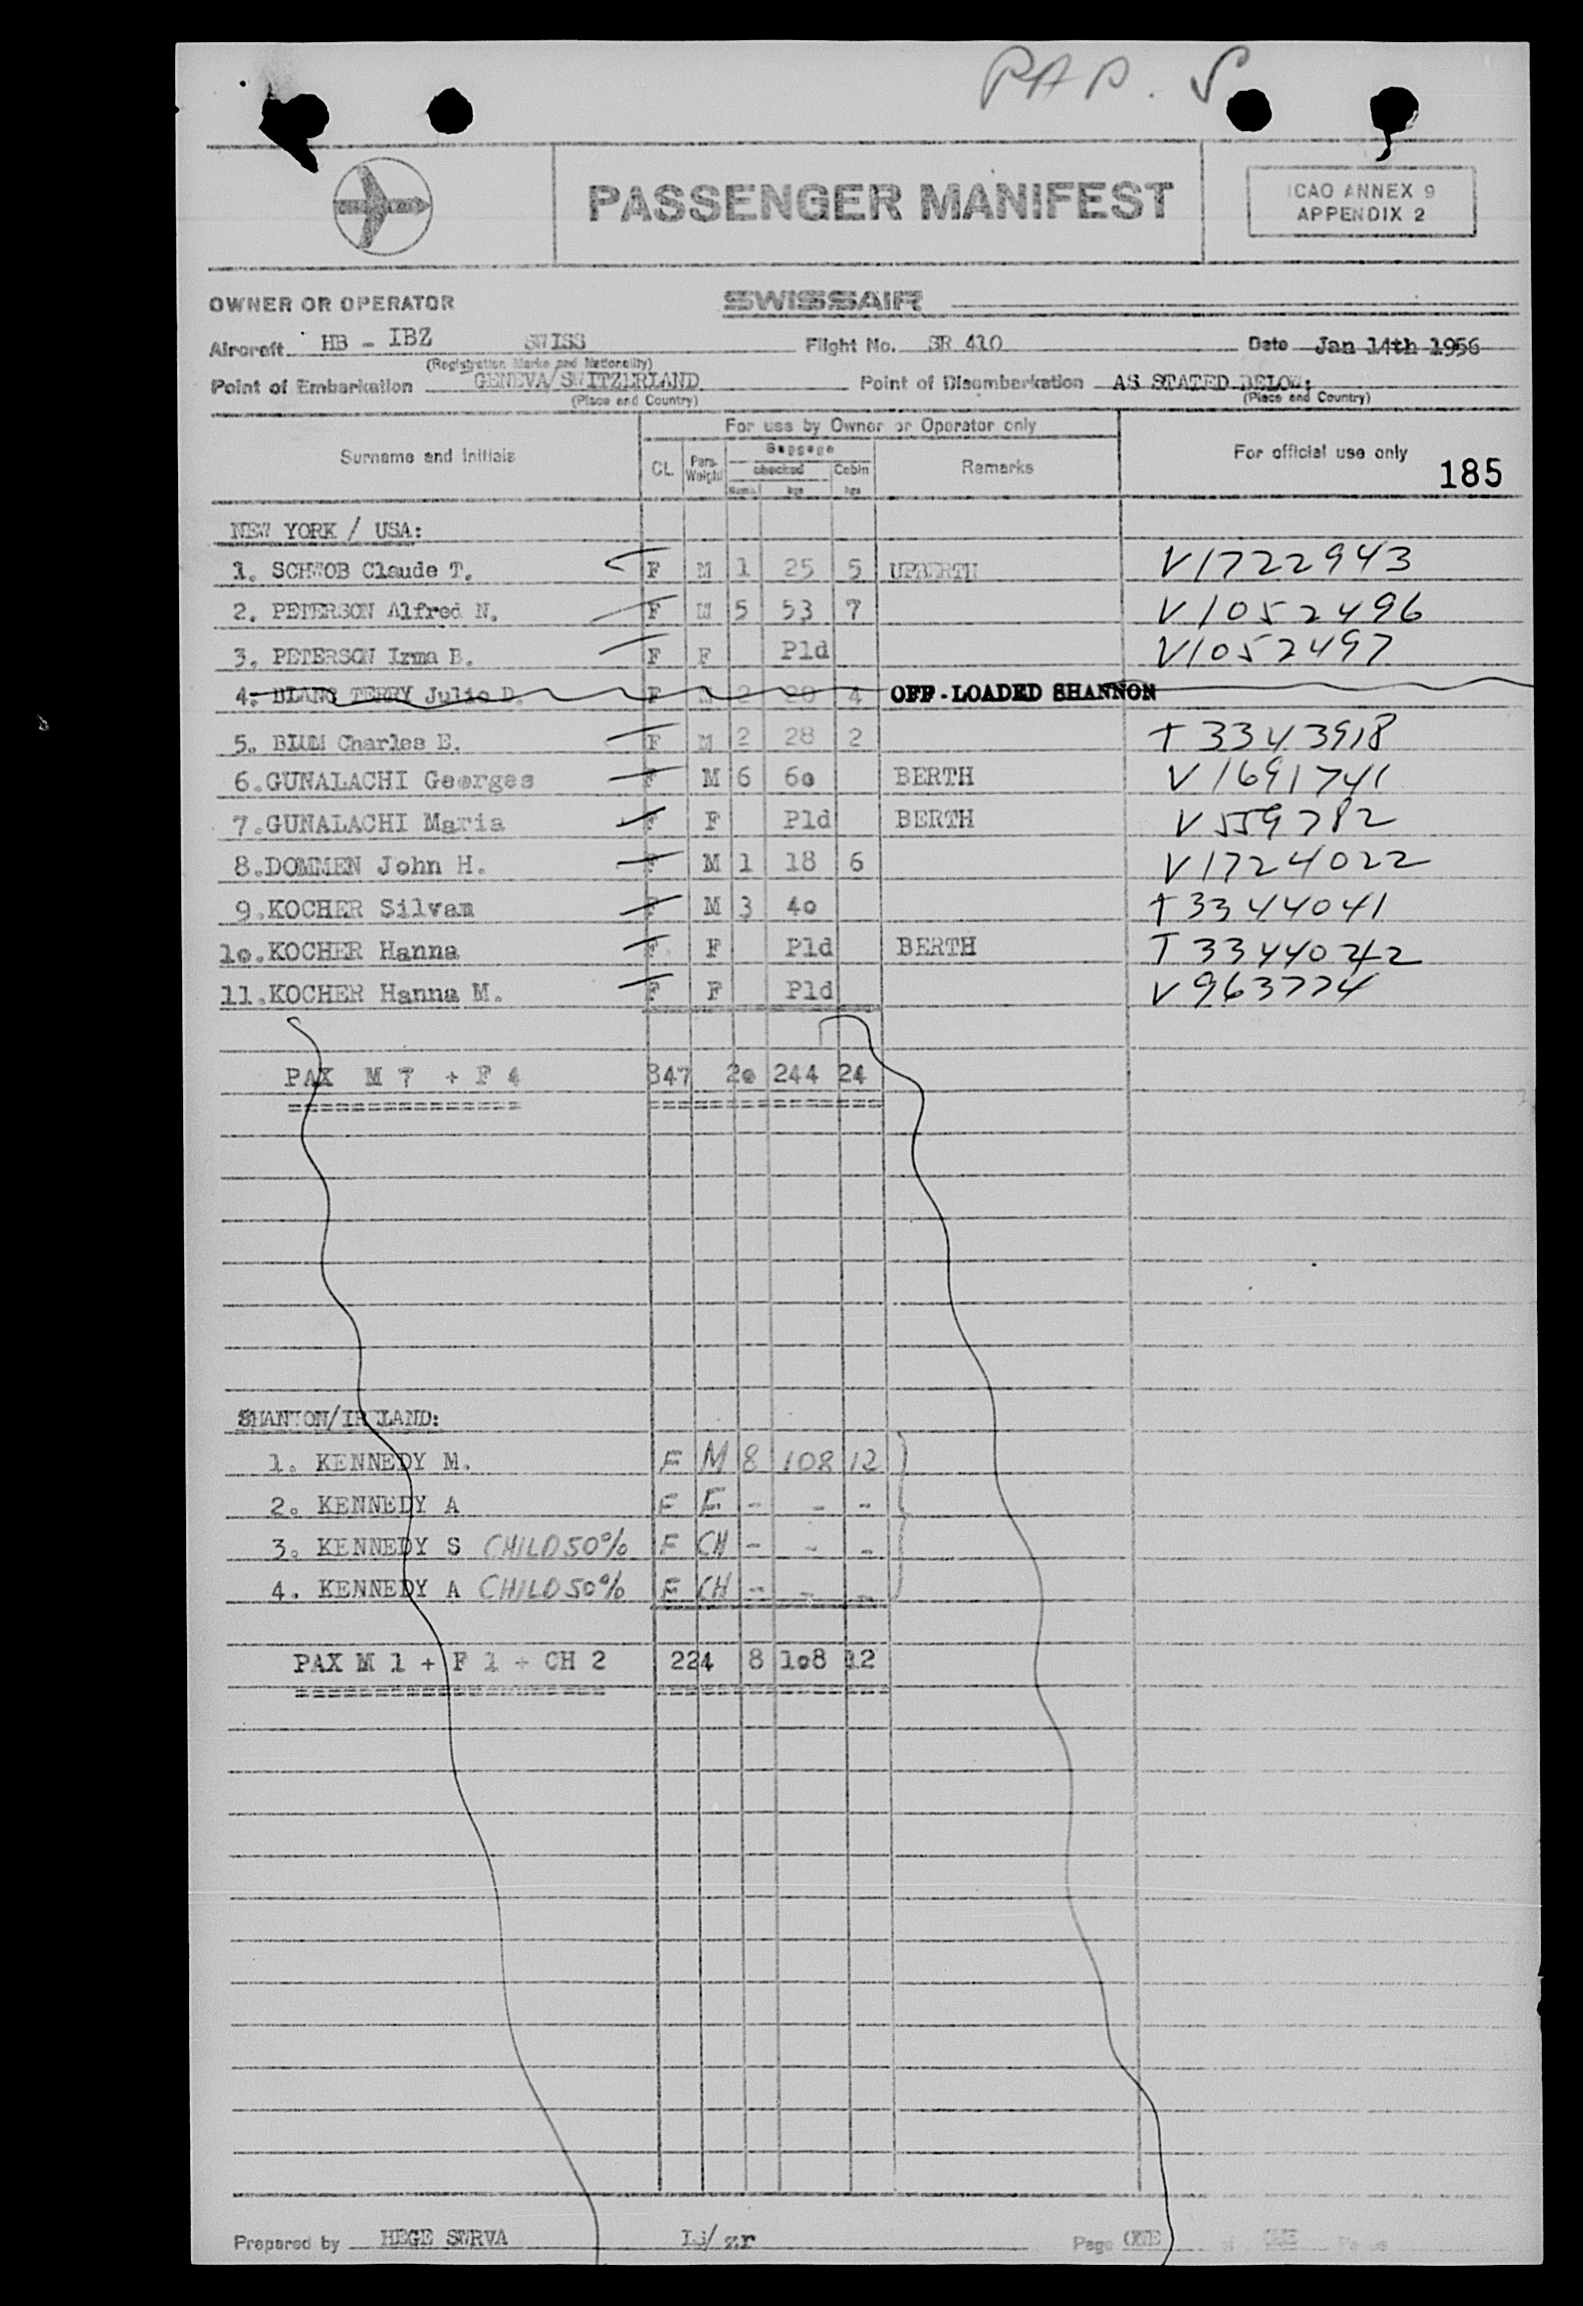 PAP. S
PASSENGER MANIFEST
ICAO ANNEX 9
APPENDIX 2
OWNER OR OPERATOR SWISSAIR
Aircraft HB - IBZ SWISS Flight No. SR 410 Date Jan 14th 1956
(Registration Marks and Nationality)
Point of Embarkation GENEVA/SWITZERLAND Point of Disembarkation AS STATED BELOW:
(Place and Country) (Place and Country)
For use by Owner or Operator only
Surname and initials CL. Pers. Weight Baggage checked Cabin Remarks For official use only 185
Num. kgs kgs
NEW YORK / USA:
1. SCHWOB Claude T. F M 1 25 5 UPBERTH V1722943
2. PETERSON Alfred N. F M 5 53 7 V1052496
3. PETERSON Irma B. F F Pld V1052497
4. BLANC TERRY Julio D. F M 2 20 4 OFF-LOADED SHANNON
5. BLUM Charles E. F M 2 28 2 T3343918
6.GUNALACHI Georges F M 6 6o BERTH V1691741
7.GUNALACHI Maria F F Pld BERTH V559782
8.DOMMEN John H. F M 1 18 6 V1724022
9.KOCHER Silvam F M 3 4o T3344041
1o.KOCHER Hanna F F Pld BERTH T3344042
11.KOCHER Hanna M. F F Pld V963774
PAX M 7 + F 4 847 2o 244 24
SHANNON/IRELAND:
1. KENNEDY M. F M 8 108 12
2. KENNEDY A F F - - -
3. KENNEDY S CHILD 50% F CH - - -
4. KENNEDY A CHILD 50% F CH - - -
PAX M 1 + F 1 + CH 2 224 8 1o8 12
Prepared by HEGE SWRVA Li/zr Page ONE of ONE Pages